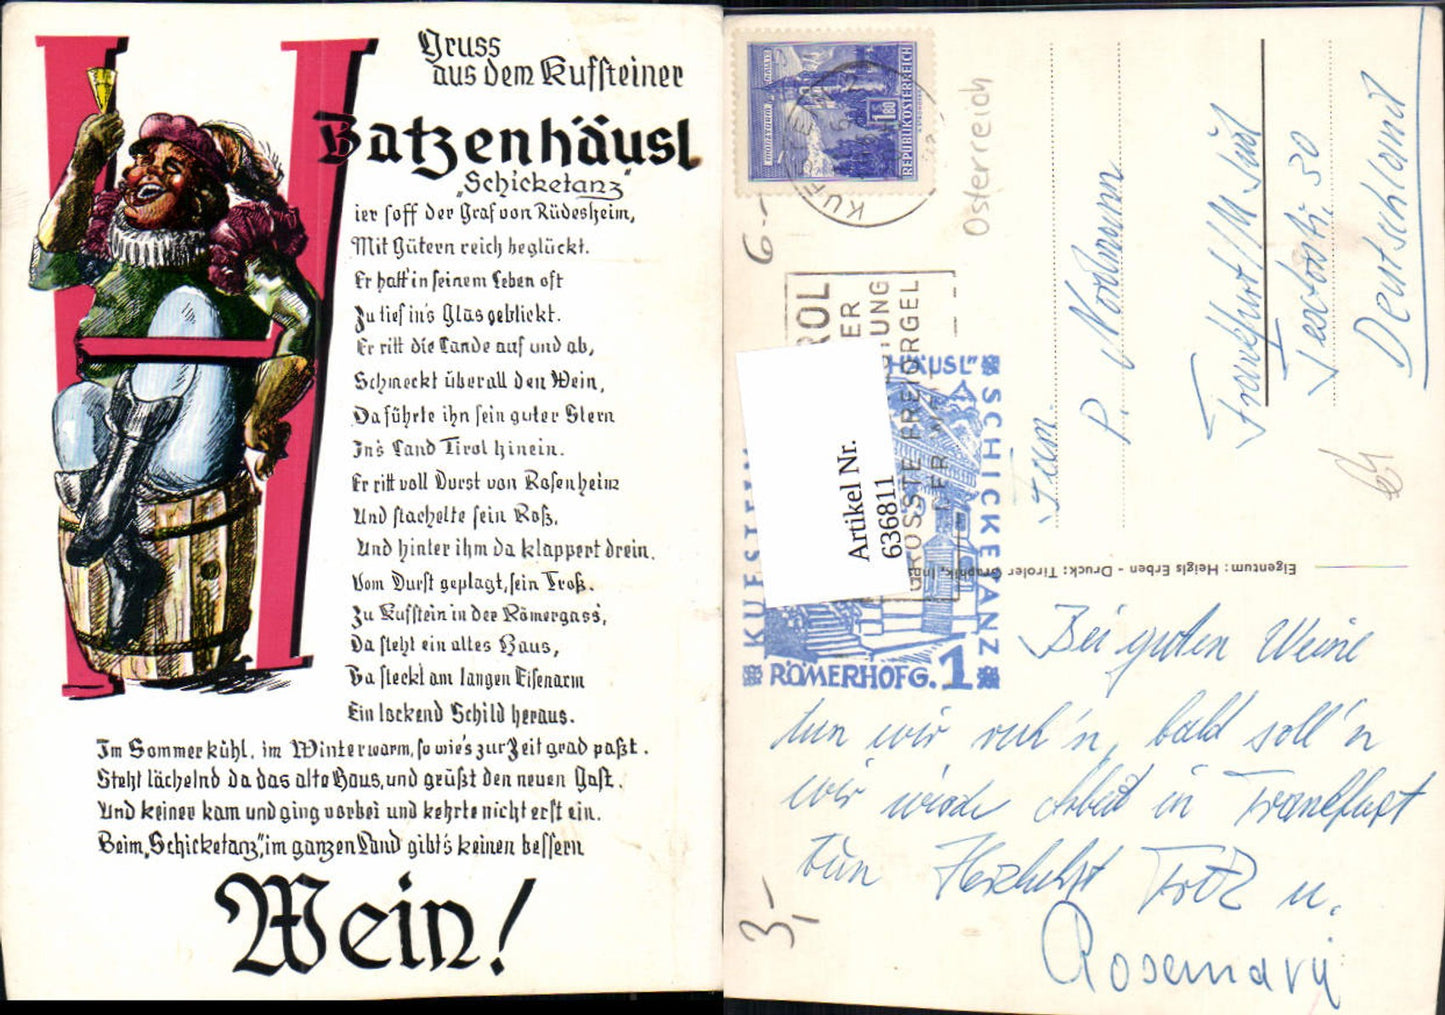 Gruss
aus dem Kufsteiner
Batzenhäusl
"Schicketanz"
Hier soff der Graf von Rüdesheim,
Mit Gütern reich beglückt.
Er hatt' in seinem Leben oft
Zu tief in's Glas geblickt.
Er ritt die Lande auf und ab,
Schmeckt überall den Wein,
Da führte ihn sein guter Stern
In's Land Tirol hinein.
Er ritt voll Durst von Rosenheim
Und stachelte sein Roß,
Und hinter ihm da klappert drein,
Vom Durst geplagt, sein Troß.
Zu Kufstein in der Römergass',
Da steht ein altes Haus,
Da steckt am langen Eisenarm
Ein lockend Schild heraus.
Im Sommer kühl, im Winter warm, so wie's zur Zeit grad paßt.
Steht lächelnd da das alte Haus, und grüßt den neuen Gast.
Und keiner kam und ging vorbei und kehrte nicht erst ein.
Beim "Schicketanz", im ganzen Land gibt's keinen bessern
Wein!
REPUBLIK ÖSTERREICH
1.80
KUFSTEIN
Österreich
6.-
ROL
DER
UNG
GRÖSSTE FREIORGEL
DER
HÄUSL"
SCHICKETANZ
KUFSTEIN
RÖMERHOFG. 1
Artikel Nr.
636811
Eigentum: Heigls Erben - Druck: Tiroler Graphik, Inn
P. Nordmann
Frankfurt/M Süd
Textorstr. 30
Deutschland
Bei guten Weine
tun wir ruh'n, bald soll'n
wir wieder Arbeit in Frankfurt
tun Herzlichst Fritz u.
Rosemarie
3,-